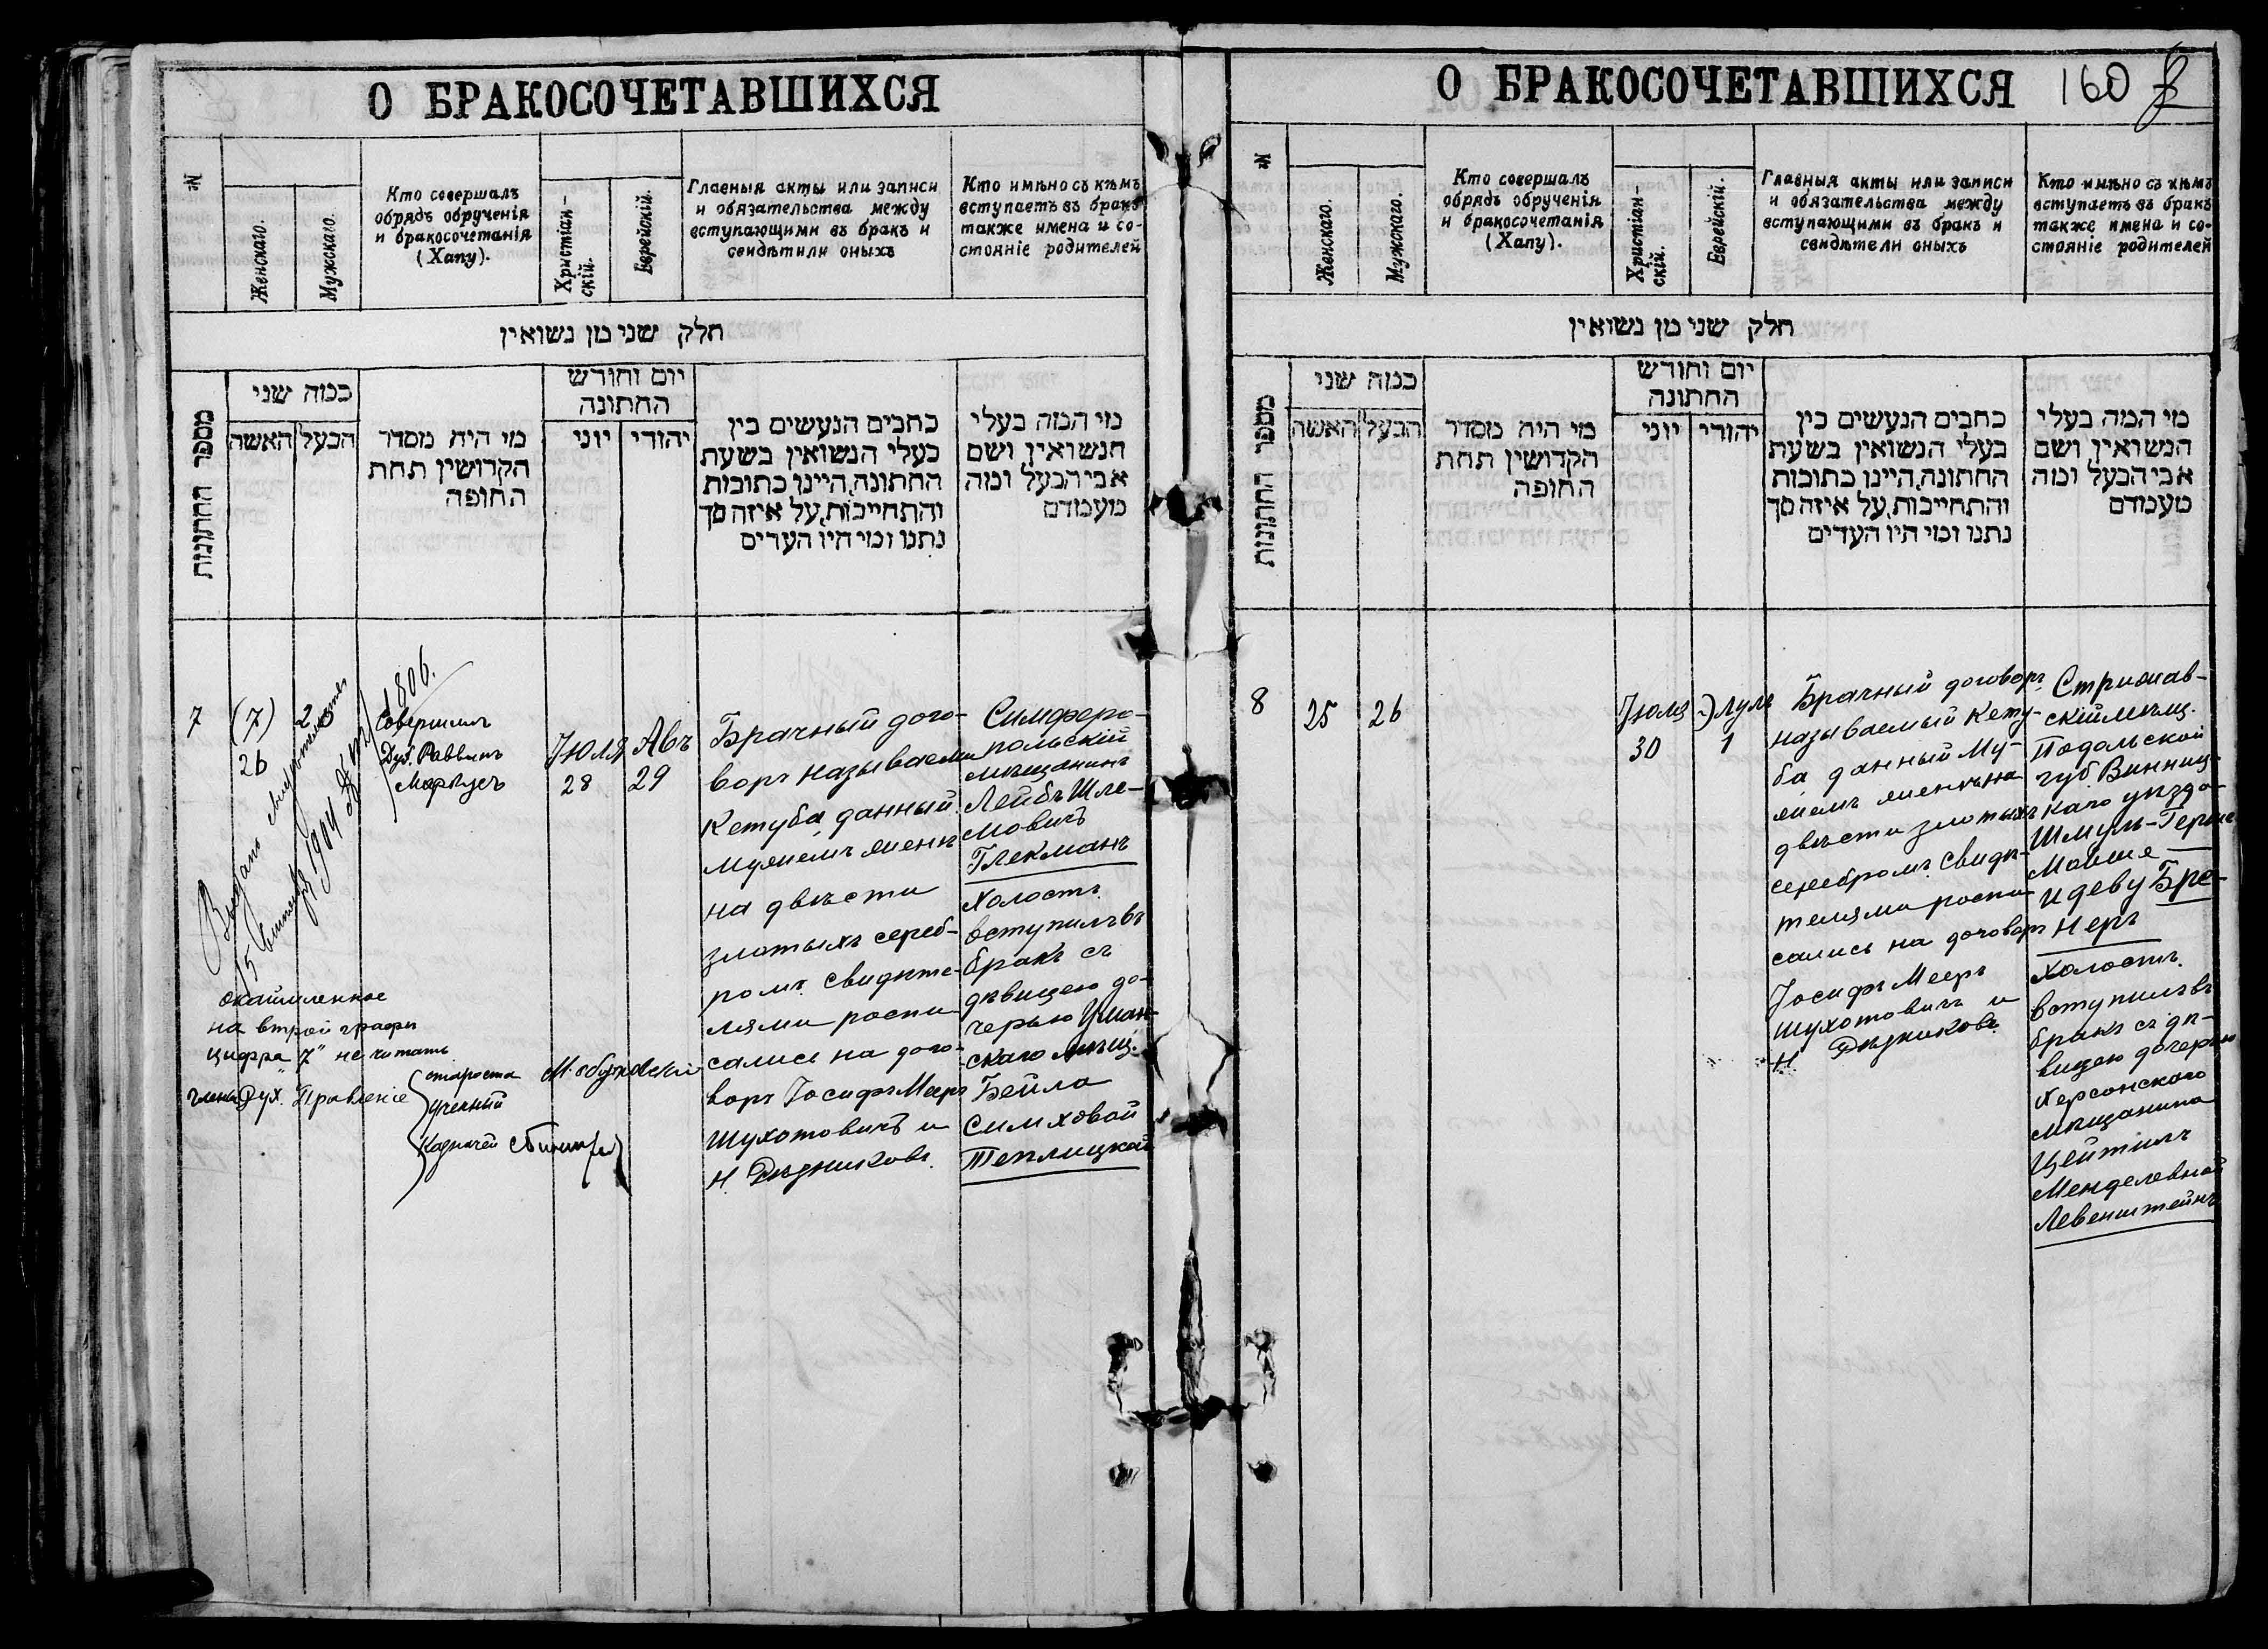 О БРАКОСОЧЕТАВШИХСЯ
№
Женскаго.
Мужскаго.
Кто совершалъ
обрядъ обрученія
и бракосочетанія
(Хапу).
Христіан-
скій.
Еврейскій.
Главныя акты или записи
и обязательства между
вступающими въ бракъ и
свидѣтили оныхъ
Кто имѣно съ кѣмъ
вступаетъ въ бракъ
также имена и со-
стояніе родителей
חלק שני מן נשואין
מספר החתונות
כמה שני
האשה
הבעל
מי היה מסדר
הקדושין תחת
החופה
יום וחודש
החתונה
יוני
יהודי
כתבים הנעשים בין
בעלי הנשואין בשעת
החתונה, היינו כתובות
והתחייבות, על איזה סך
נתנו ומי היו העדים
מי המה בעלי
הנשואין ושם
אבי הבעל ומה
מעמדם
7
(7)
26
Совершилъ
Дух. Раввинъ
Маркусъ
1806.
Іюля
28
Авъ
29
Брачный дого-
воръ называемы
Кетуба, данный
мужемъ женѣ
на двѣсти
злотыхъ сереб-
ромъ. Свидѣте-
лями роспи-
сались на дого-
воръ Іосифъ Мееръ
Шухотовичъ и
Н. Рѣзниковъ.
Симферо-
польскій
мѣщанинъ
Лейбъ Шле-
мовичъ
Глекманъ
Холостъ.
вступилъ въ
бракъ съ
дѣвицею до-
черью Уман-
скаго мѣщ.
Бейла
Симховой
Теплицкой
Выдано свидѣтельство
15 1904
окаймленное
на второй графѣ
цифра "7" не читать
члены Дух. Правленіе
староста
ученый
казначей
О БРАКОСОЧЕТАВШИХСЯ
160
№
Женскаго.
Мужскаго.
Кто совершалъ
обрядъ обрученія
и бракосочетанія
(Хапу).
Христиан-
скій.
Еврейскій.
Главныя акты или записи
и обязательства между
вступающими въ бракъ и
свидѣтели оныхъ
Кто имѣно съ кѣмъ
вступаетъ въ бракъ
также имена и со-
стояніе родителей
חלק שני מן נשואין
מספר החתונות
כמה שני
האשה
הבעל
מי היה מסדר
הקדושין תחת
החופה
יום וחודש
החתונה
יוני
יהודי
כתבים הנעשים בין
בעלי הנשואין בשעת
החתונה, היינו כתובות
והתחייבות, על איזה סך
נתנו ומי היו העדים
מי המה בעלי
הנשואין ושם
אבי הבעל ומה
מעמדם
8
25
26
Іюля
30
Элуль
1
Брачный договоръ
называемый Кету-
ба данный Му-
жемъ женѣ на
двѣсти злотыхъ
серебромъ. Свидѣ-
телями роспи-
сались на договоръ
Іосифъ Мееръ
Шухотовичъ и
Н. Рѣзниковъ.
Стрижав-
скій мѣщ.
Подольской
губ. Винниц-
каго уѣзда
Шмуль-Герше
Мовше
Идеву Бре-
неръ
Холостъ.
вступилъ въ
бракъ съ дѣ-
вицею дочерью
Херсонского
мѣщанина
Цейтиль
Менделевной
Левенштейнъ